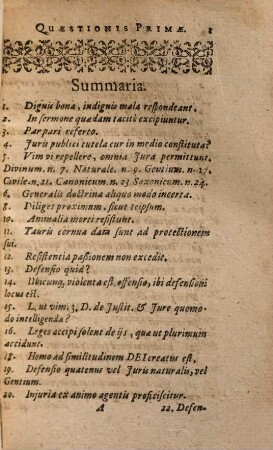 QUÆSTIONIS PRIMÆ. 1
Summaria.
1. Dignis bona, indignis mala respondeant.
2. In sermone quædam tacitè excipiuntur.
3. Par pari referto.
4. Juris publici tutela cur in medio constituta?
5. Vim vi repellere, omnia Jura permittunt.
Divinum. n. 7. Naturale. n. 9. Gentium. n. 17.
Civile. n. 21. Canonicum. n. 23 Saxonicum. n. 24.
6. Generalis doctrina aliquo modo incerta.
8. Diliges proximum, sicut teipsum.
10. Animalia morti resistunt.
11. Tauris cornua data sunt ad protectionem
sui.
12. Resistentia passionem non excedit.
13. Defensio quid?
14. Ubicunq; violenta est offensio, ibi defensioni
locus est.
15. L. ut vim. 3. D. de Justit. & Jure quomo-
do intelligenda?
16. Leges accipi solent de ijs, qua ut plurimum
accidunt.
18. Homo ad similitudinem DEI creatus est.
19. Defensio quatenus vel Juris naturalis, vel
Gentium.
20. Injuria ex animo agentis proficiscitur.
A 22. Defen-